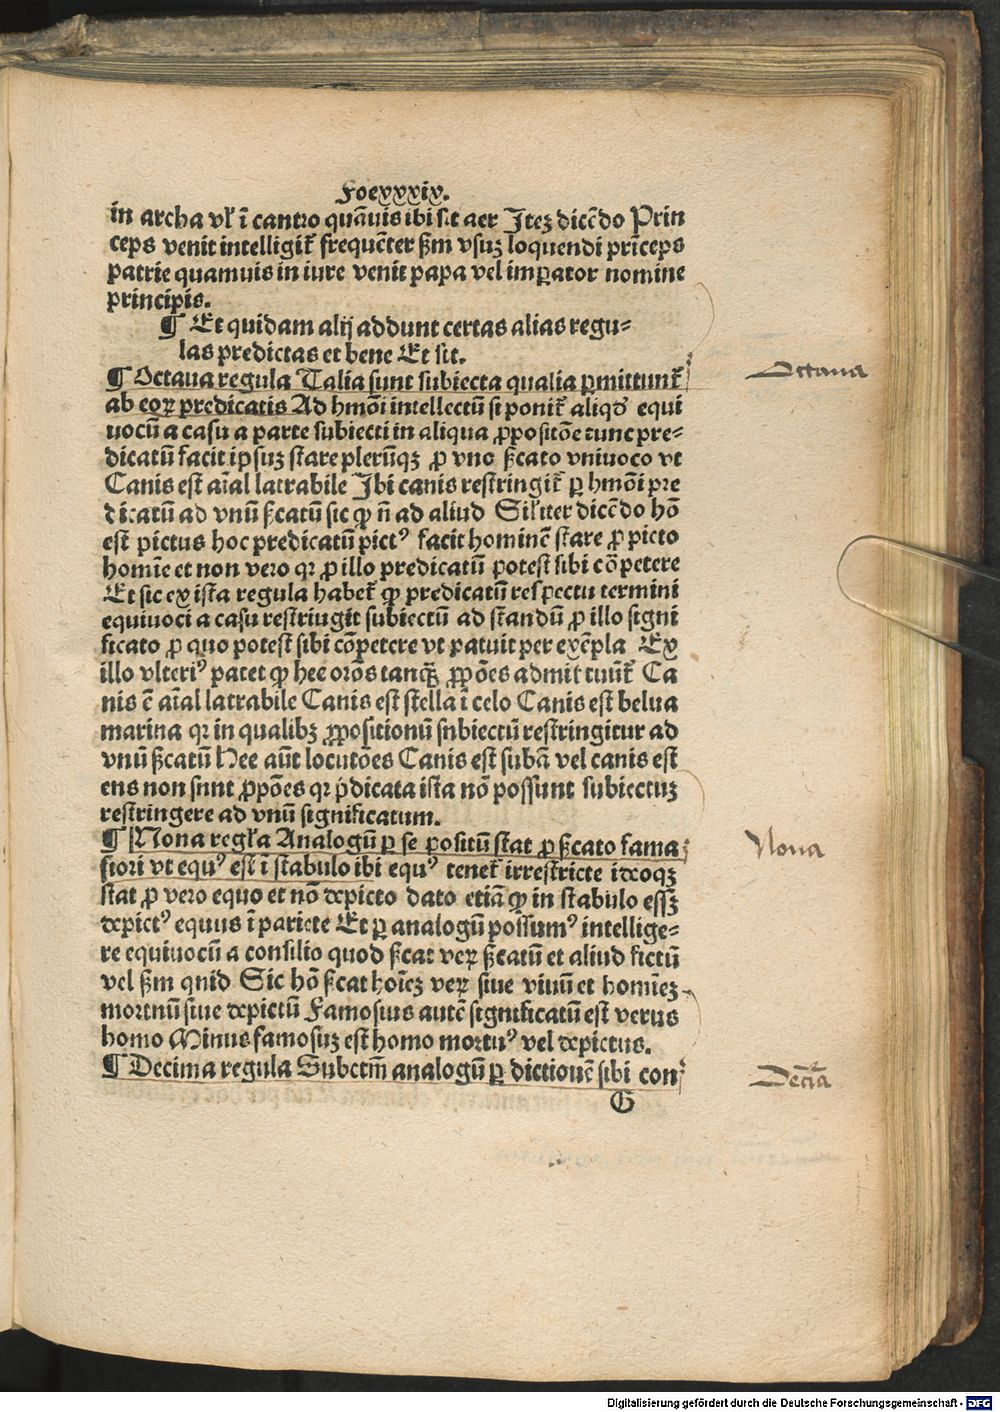 Foexxxix.
in archa vl̕ ī cantro quāuis ibi sit aer Itez dicēdo Prin
ceps venit intelligit̕ frequēter ẜm vsuz loquendi prīceps
patrie quamuis in iure venit papa vel imꝑator nomine
principis.
¶ Et quidam alij addunt certas alias regu⸗
las predictas et bene Et sit.
¶ Octaua regula Talia sunt subiecta qualia ꝑmittunt̕
ab eoꝝ predicatis Ad hmōi intellectū si ponit̕ aliqď equi
uocū a casu a parte subiecti in aliqua ꝓpositōe tunc pre⸗
dicatū facit ipsuz stare plerūqꝫ ꝓ vno ẜcato vniuoco vt
Canis est aīal latrabile Ibi canis restringit̕ ꝑ hmōi pre
dicatū ad vnū ẜcatū sic ꝙ n̄ ad aliud Sil̕iter dicēdo hō
est pictus hoc predicatū pictꝰ facit hominē stare ꝓ picto
homīe et non vero qꝛ ꝓ illo predicatū potest sibi cōpetere
Et sic ex ista regula habet̕ ꝙ predicatū respectu termini
equiuoci a casu restriugit subiectū ad standū ꝓ illo signi
ficato ꝓ quo potest sibi cōpetere vt patuit per exēpla Ex
illo vlteriꝰ patet ꝙ hee orōs tanꝙ̄ ꝓpōes admittunt̕ Ca
nis ē aīal latrabile Canis est stella ī celo Canis est belua
marina qꝛ in qualibꝫ ꝓpositionū snbiectū restringitur ad
vnū ẜcatū Hee aūt locutōes Canis est subā vel canis est
ens non snnt ꝓpōes qꝛ p̄dicata ista nō possunt subiectuz
restringere ad vnū significatum.
¶ Nona regl̕a Analogū ꝑ se positū stat ꝓ ẜcato fama
siori vt equꝰ est ī stabulo ibi equꝰ tenet̕ irrestricte ideoqꝫ
stat ꝓ vero equo et nō depicto dato etiā ꝙ in stabulo essꝫ
depictꝰ equus ī pariete Et ꝑ analogū possumꝰ intellige⸗
re equiuocū a consilio quod ẜcat veꝝ ẜcatū et aliud fictū
vel ẜm qnid Sic hō ẜcat hoīez veꝝ siue viuū et homīez
mortnū siue depictū Famosius autē significatū est verus
homo Minus famosuz est homo mortuꝰ vel depictus.
¶ Decima regula Subctm̄ analogū ꝑ dictionē sibi con
G
Octaua
Nona
Decīa
Digitalisierung gefördert durch die Deutsche Forschungsgemeinschaft - DFG